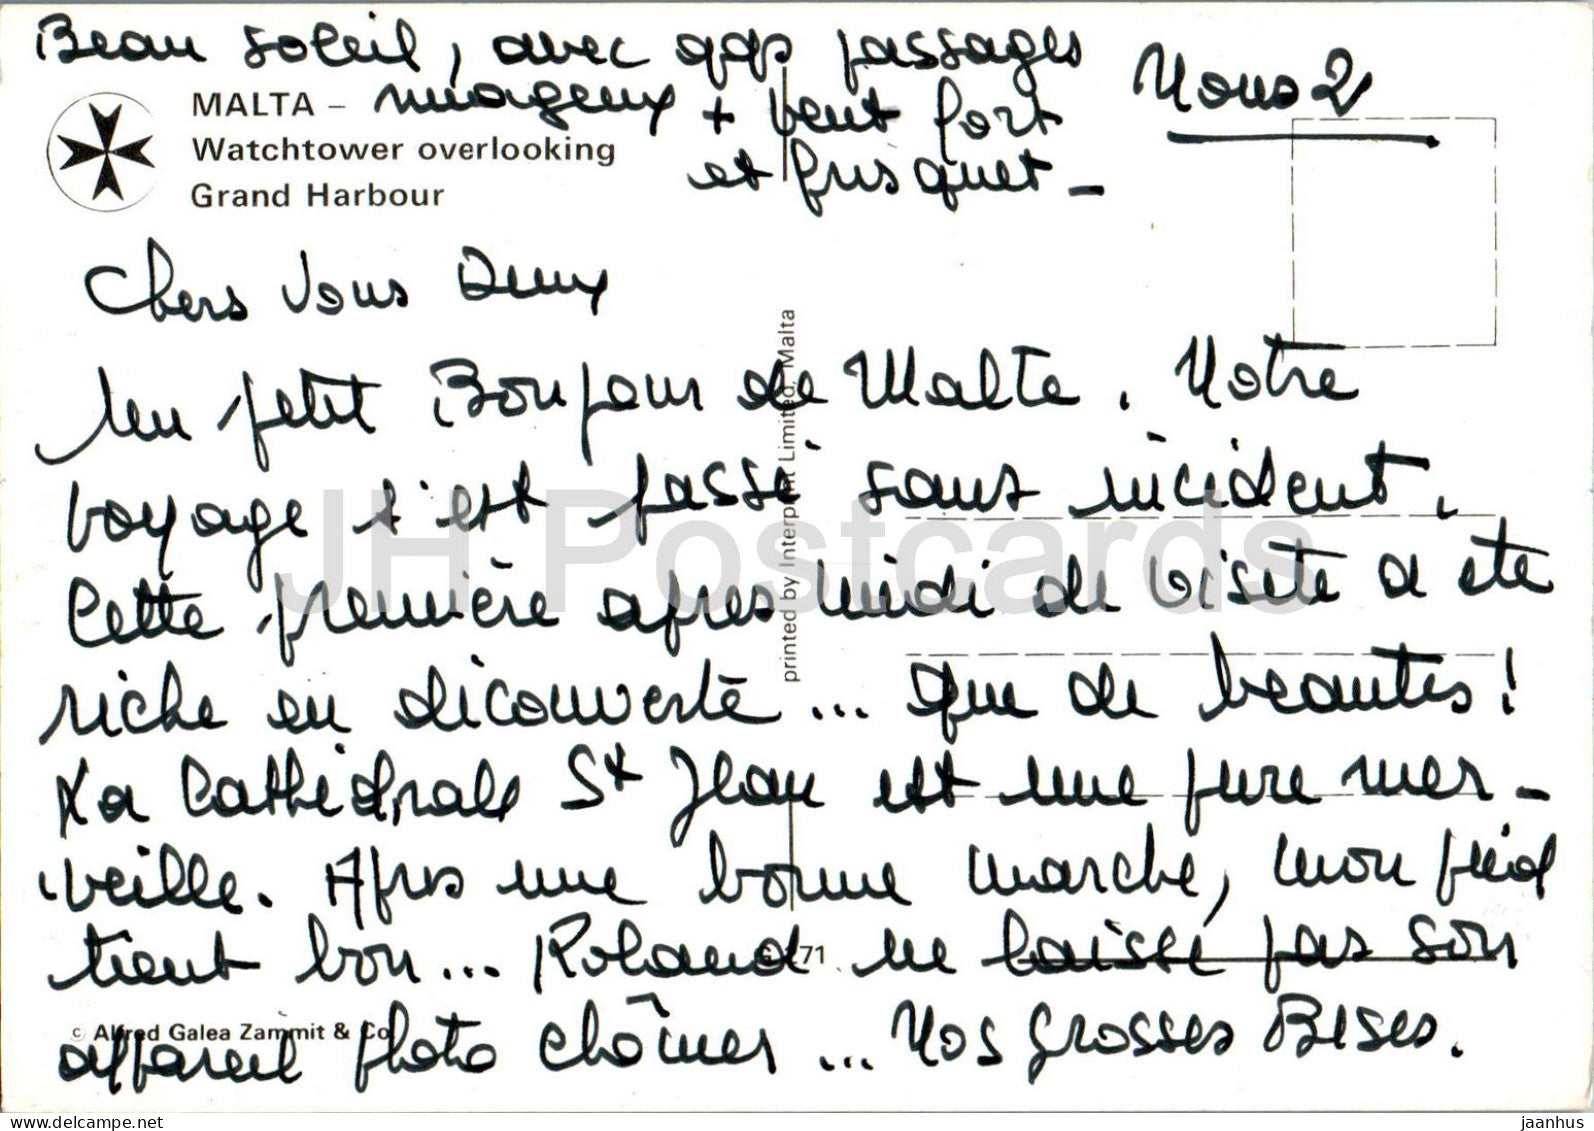 Beau soleil, avec qqs passages
nuageux + vent fort
et frisquet -
Nous 2
MALTA -
Watchtower overlooking
Grand Harbour
Chers Vous Deux
Un petit Bonjour de Malte. Notre
voyage s'est passé sans incident.
Cette première après midi de visite a été
riche en découverte ... que de beautés !
La Cathédrale St Jean est une pure mer-
veille. Après une bonne marche, mon pied
tient bon ... Roland ne laisse pas son
appareil photo chômer ... Nos grosses Bises.
printed by Interprint Limited, Malta
71
© Alfred Galea Zammit & Co
JH Postcards
jaanhus
delcampe.net